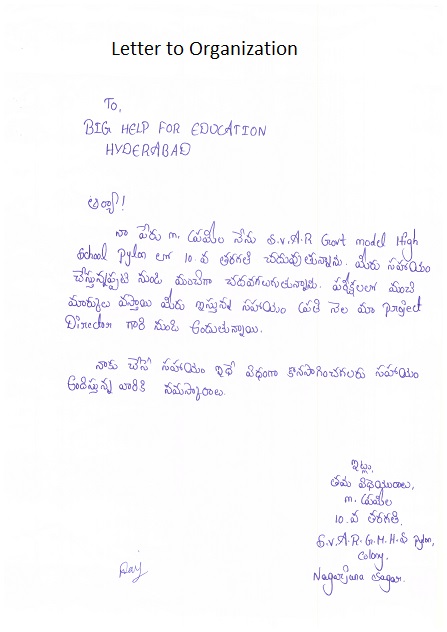 Letter to Organization
To,
BIG HELP FOR EDUCATION
HYDERABAD
ఆర్యా!
నా పేరు m. ప్రమీల నేను S.V.A.R Govt model High
School Pylon లో 10.వ తరగతి చదువుతున్నాను. మీరు సహాయం
చేస్తున్నప్పటి నుండి మంచిగా చదవగలుగుతున్నాను. పరీక్షలలో మంచి
మార్కులు వస్తాయి మీరు ఇస్తున్న సహాయం ప్రతి నెల మా project
Director గారి నుండి అందుతున్నాయి.
నాకు చేసే సహాయం ఇదే విధంగా కొనసాగించగలరు సహాయం
అందిస్తున్న వారికి నమస్కారాలు.
ఇట్లు,
తమ విధేయురాలు,
m. ప్రమీల
10.వ తరగతి,
S.V.A.R.G.M.H.S Pylon,
colony.
Nagarjuna Sagar.